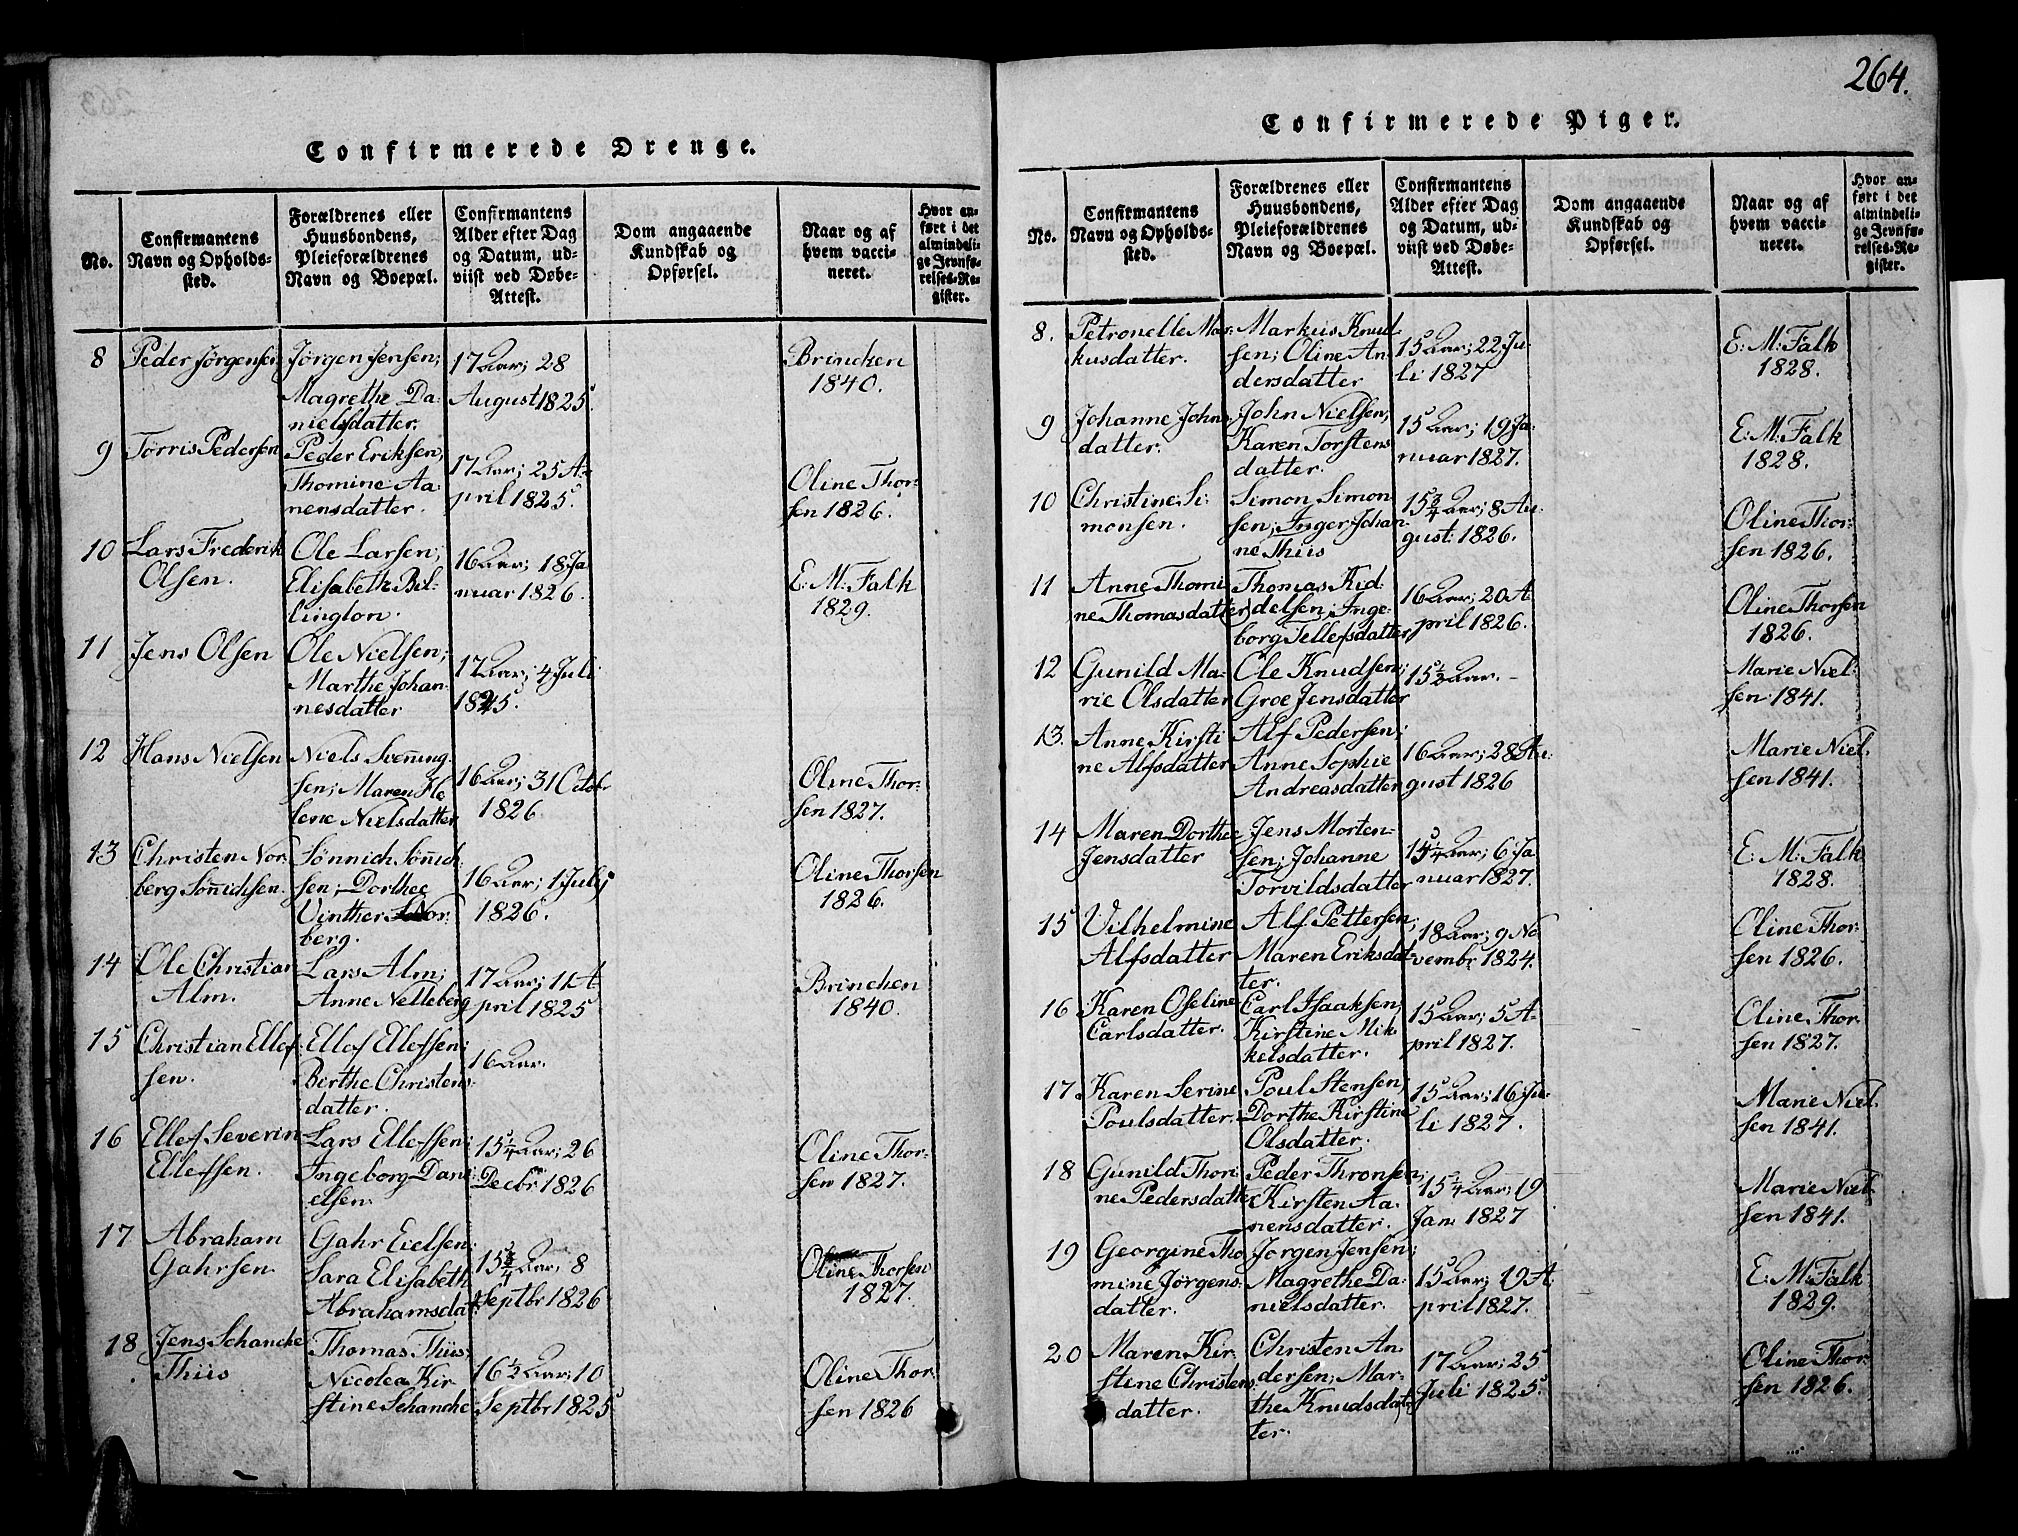 264.
Confirmerede Drenge.
No.
Confirmantens
Navn og Opholds-
sted.
Forældrenes eller
Huusbondens,
Pleieforældrenes
Navn og Boepæl.
Confirmantens
Alder efter Dag
og Datum, ud-
viist ved Døbe-
Attest.
Dom angaaende
Kundskab og
Opførsel.
Naar og af
hvem vacci-
neret.
Hvor an-
ført i det
almindeli-
ge Jevnfø-
relses-Re-
gister.
8
Peder Jørgensen
Jørgen Jensen;
Magrethe Da-
nielsdatter.
17 Aar; 28
August 1825.
Brincken
1840.
9
Tørris Pedersen
Peder Eriksen,
Thomine Aa-
nensdatter.
17 Aar; 25 A-
pril 1825.
Oline Thor-
sen 1826.
10
Lars Frederik
Olsen.
Ole Larsen;
Elisabeth Bil-
lington.
16 Aar; 18 Ja
nuar 1826.
E: M: Falk
1829.
11
Jens Olsen
Ole Nielsen;
Marthe Johan-
nesdatter
17 Aar; 4 Juli
1825.
12
Hans Nielsen
Niels Svenning-
sen; Maren He
lene Nielsdatter
16 Aar; 31 Octobr
1826
Oline Thor-
sen 1827.
13
Christen Nor-
berg Sønnichsen.
Sønnich Sønnich
sen; Dorthee
Vinther Nor-
berg.
16 Aar; 1 July
1826.
Oline Thorsen
1826.
14
Ole Christian
Alm.
Lars Alm;
Anne Nelleberg
17 Aar; 11 A
pril 1825
Brincken
1840.
15
Christian Ellef-
sen.
Ellef Ellefsen;
Birthe Christens-
datter.
16 Aar.
16
Ellef Severin
Ellefsen.
Lars Ellefsen;
Ingeborg Dani-
elsen.
15 1/4 Aar; 26
Decbr 1826
Oline Thor-
sen 1827.
17
Abraham
Gahrsen
Gahr Eielsen;
Sara Elisabeth
Abrahamsdat
15 3/4 Aar; 8
Septbr 1826
Oline Thorsen
1827.
18
Jens Schancke
Thiis
Thomas Thiis;
Nicolea Kir
stine Schancke
16 1/2 Aar; 10
Septbr 1825
Oline Thor
sen 1826
Confirmerede Piger.
No.
Confirmantens
Navn og Opholds-
sted.
Forældrenes eller
Huusbondens,
Pleieforældrenes
Navn og Boepæl.
Confirmantens
Alder efter Dag
og Datum, ud-
viist ved Døbe-
Attest.
Dom angaaende
Kundskab og
Opførsel.
Naar og af
hvem vacci-
neret.
Hvor an-
ført i det
almindeli-
ge Jevnfø-
relses-Re-
gister.
8.
Petronelle Mar-
kusdatter.
Markus Knud-
sen; Oline An-
dersdatter
15 Aar; 22 Ju-
li 1827
E: M: Falk
1828.
9
Johanne Johns
datter.
John Nielsen;
Karen Torstens
datter.
15 Aar; 19 Ja-
nuar 1827.
E: M: Falk
1828.
10
Christine Si-
monsen.
Simon Simon
sen; Inger Johan-
ne Thiis
15 3/4 Aar; 8 Au-
gust 1826.
Oline Thor-
sen 1826.
11
Anne Thomi
ne Thomasdatter
Thomas Kid-
delsen; Inge-
borg Tellefsdatter
16 Aar; 20 A
pril 1826.
Oline Thorsen
1826.
12
Gunild Ma-
rie Olsdatter
Ole Knudsen;
Groe Jensdatter
15 1/2 Aar. -
Marie Niel-
sen 1841.
13.
Anne Kirsti
ne Alfsdatter
Alf Pedersen;
Anne Sophie
Andreasdatter
16 Aar; 28 Au-
gust 1826
Marie Niel-
sen 1841.
14
Maren Dorthee
Jensdatter
Jens Morten-
sen; Johanne
Torvildsdatter
15 1/4 Aar; 6 Ja
nuar 1827.
E: M: Falk
1828.
15
Vilhelmine
Alfsdatter
Alf Pettersen;
Maren Eriksdat-
ter.
18 Aar; 9 No
vembr 1824.
Oline Thor-
sen 1826.
16
Karen Oseline
Carlsdatter.
Carl Isaaksen;
Kirstine Mik-
kelsdatter.
15 Aar; 5 A-
pril 1827.
Oline Thor-
sen 1827.
17
Karen Serine
Poulsdatter.
Poul Stensen,
Dorthe Kirstine
Olsdatter.
15 Aar; 16 Ju-
li 1827.
Marie Niel-
sen 1841.
18
Gunild Thori-
ne Pedersdatter
Peder Thronsen;
Kirsten Aa-
nensdatter.
15 1/4 Aar; 19
Jan: 1827
Marie Niel-
sen 1841.
19
Georgine Tho
mine Jørgens-
datter.
Jørgen Jensen;
Magrethe Da-
nielsdatter.
15 Aar; 19 A-
pril 1827.
E: M: Falk
1829.
20
Maren Kir-
stine Christens-
datter.
Christen An
dersen; Mar-
the Knudsdat-
ter.
17 Aar; 25
Juli 1825.
Oline Thor-
sen 1826.